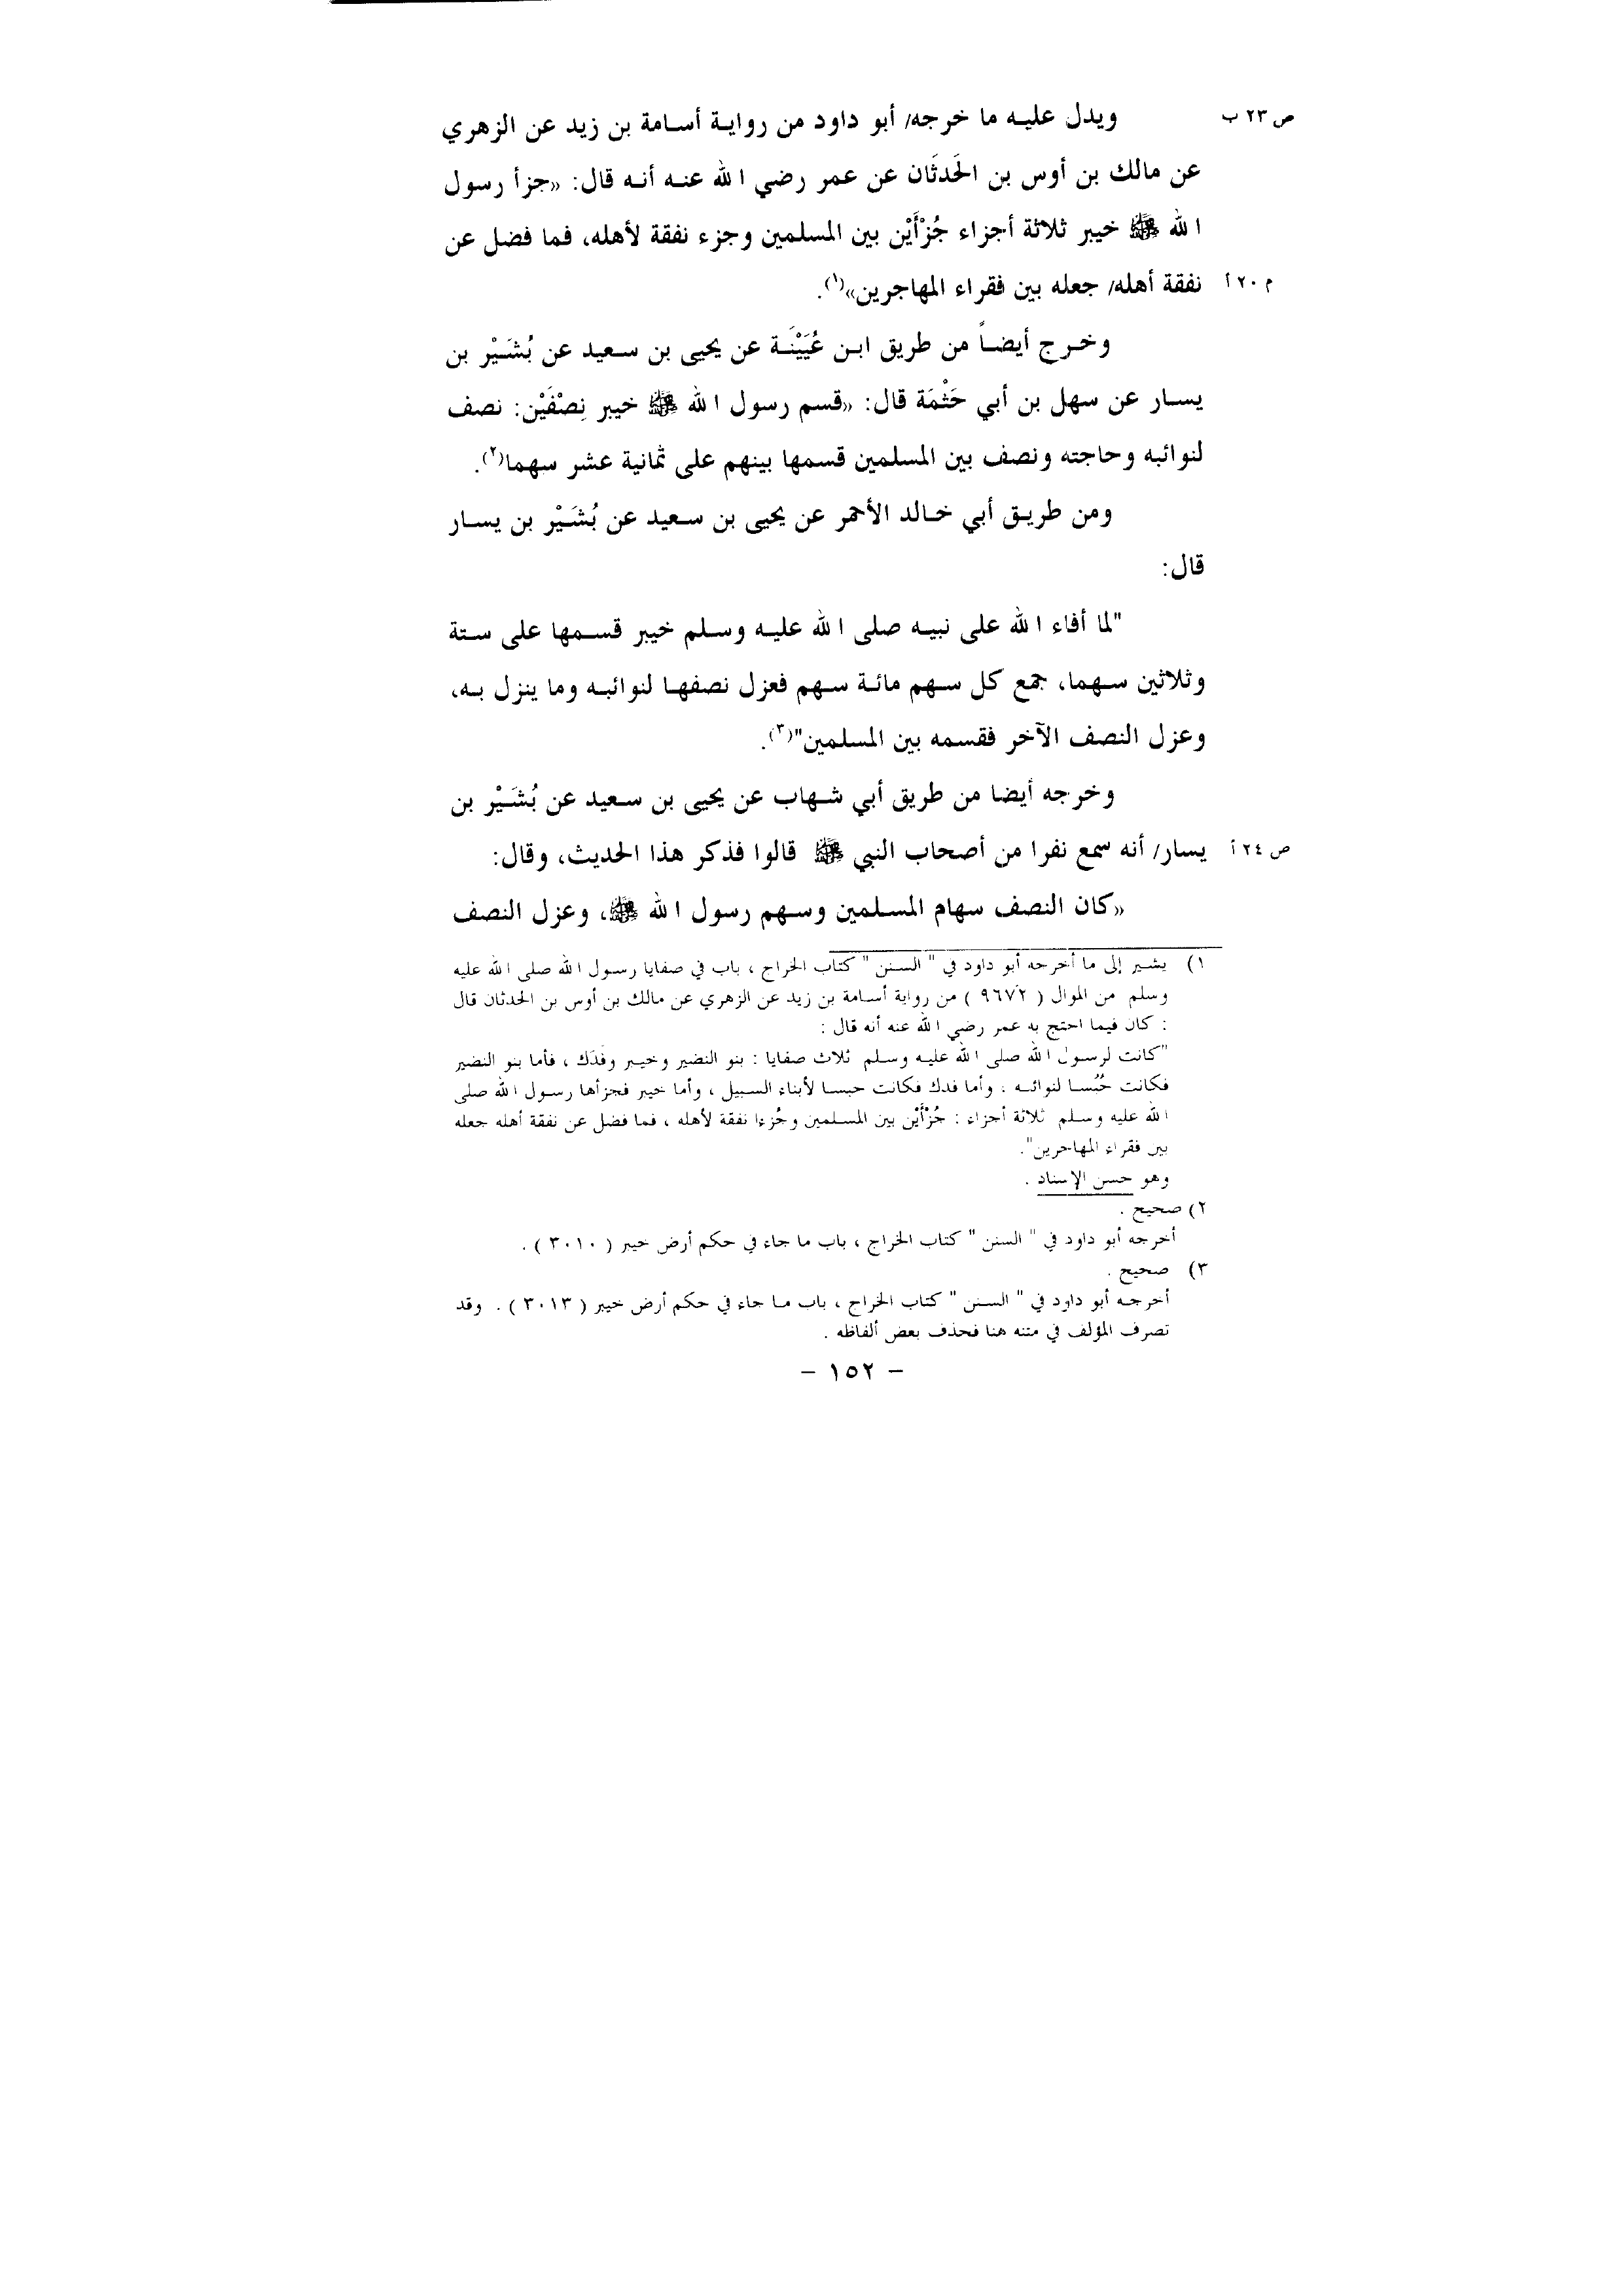 ص ٢٣ ب ويدل عليه ما خرجه/ أبو داود من رواية أسامة بن زيد عن الزهري
عن مالك بن أوس بن الحَدثَان عن عمر رضي الله عنه أنه قال: «جزأ رسول
الله ﷺ خيبر ثلاثة أجزاء جُزْأَيْن بين المسلمين وجزء نفقة لأهله، فما فضل عن
م ٢٠ أ نفقة أهله/ جعله بين فقراء المهاجرين»(١).
وخرج أيضاً من طريق ابن عُيَيْنَة عن يحيى بن سعيد عن بُشَيْر بن
يسار عن سهل بن أبي حَثْمَة قال: «قسم رسول الله ﷺ خيبر نِصْفَيْن: نصف
لنوائبه وحاجته ونصف بين المسلمين قسمها بينهم على ثمانية عشر سهما(٢).
ومن طريق أبي خالد الأحمر عن يحيى بن سعيد عن بُشَيْر بن يسار
قال:
"لما أفاء الله على نبيه صلى الله عليه وسلم خيبر قسمها على ستة
وثلاثين سهما، جمع كل سهم مائة سهم فعزل نصفها لنوائبه وما ينزل به،
وعزل النصف الآخر فقسمه بين المسلمين"(٣).
وخرجه أيضا من طريق أبي شهاب عن يحيى بن سعيد عن بُشَيْر بن
ص ٢٤ أ يسار/ أنه سمع نفرا من أصحاب النبي ﷺ قالوا فذكر هذا الحديث، وقال:
«كان النصف سهام المسلمين وسهم رسول الله ﷺ، وعزل النصف
١) يشير إلى ما أخرجه أبو داود في " السنن " كتاب الخراج ، باب في صفايا رسول الله صلى الله عليه
وسلم من الموال ( ٩٦٧٢ ) من رواية أسامة بن زيد عن الزهري عن مالك بن أوس بن الحدثان قال
: كان فيما احتج به عمر رضي الله عنه أنه قال :
"كانت لرسول الله صلى الله عليه وسلم ثلاث صفايا : بنو النضير وخيبر وفَدَك ، فأما بنو النضير
فكانت حُبُسا لنوائبه ، وأما فدك فكانت حبسا لأبناء السبيل ، وأما خيبر فجزأها رسول الله صلى
الله عليه وسلم ثلاثة أجزاء : جُزْأَيْن بين المسلمين وجُزءا نفقة لأهله ، فما فضل عن نفقة أهله جعله
بين فقراء المهاجرين".
وهو حسن الإسناد .
٢) صحيح .
أخرجه أبو داود في " السنن " كتاب الخراج ، باب ما جاء في حكم أرض خيبر ( ٣٠١٠ ) .
٣) صحيح .
أخرجه أبو داود في " السنن " كتاب الخراج ، باب ما جاء في حكم أرض خيبر ( ٣٠١٣ ) . وقد
تصرف المؤلف في متنه هنا فحذف بعض ألفاظه .
– ١٥٢ –